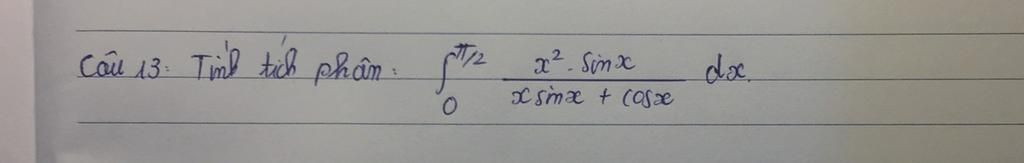 Câu 13: Tính tích phân: ∫₀^{π/2} \frac{x². sinx}{x sinx + cosx} dx.